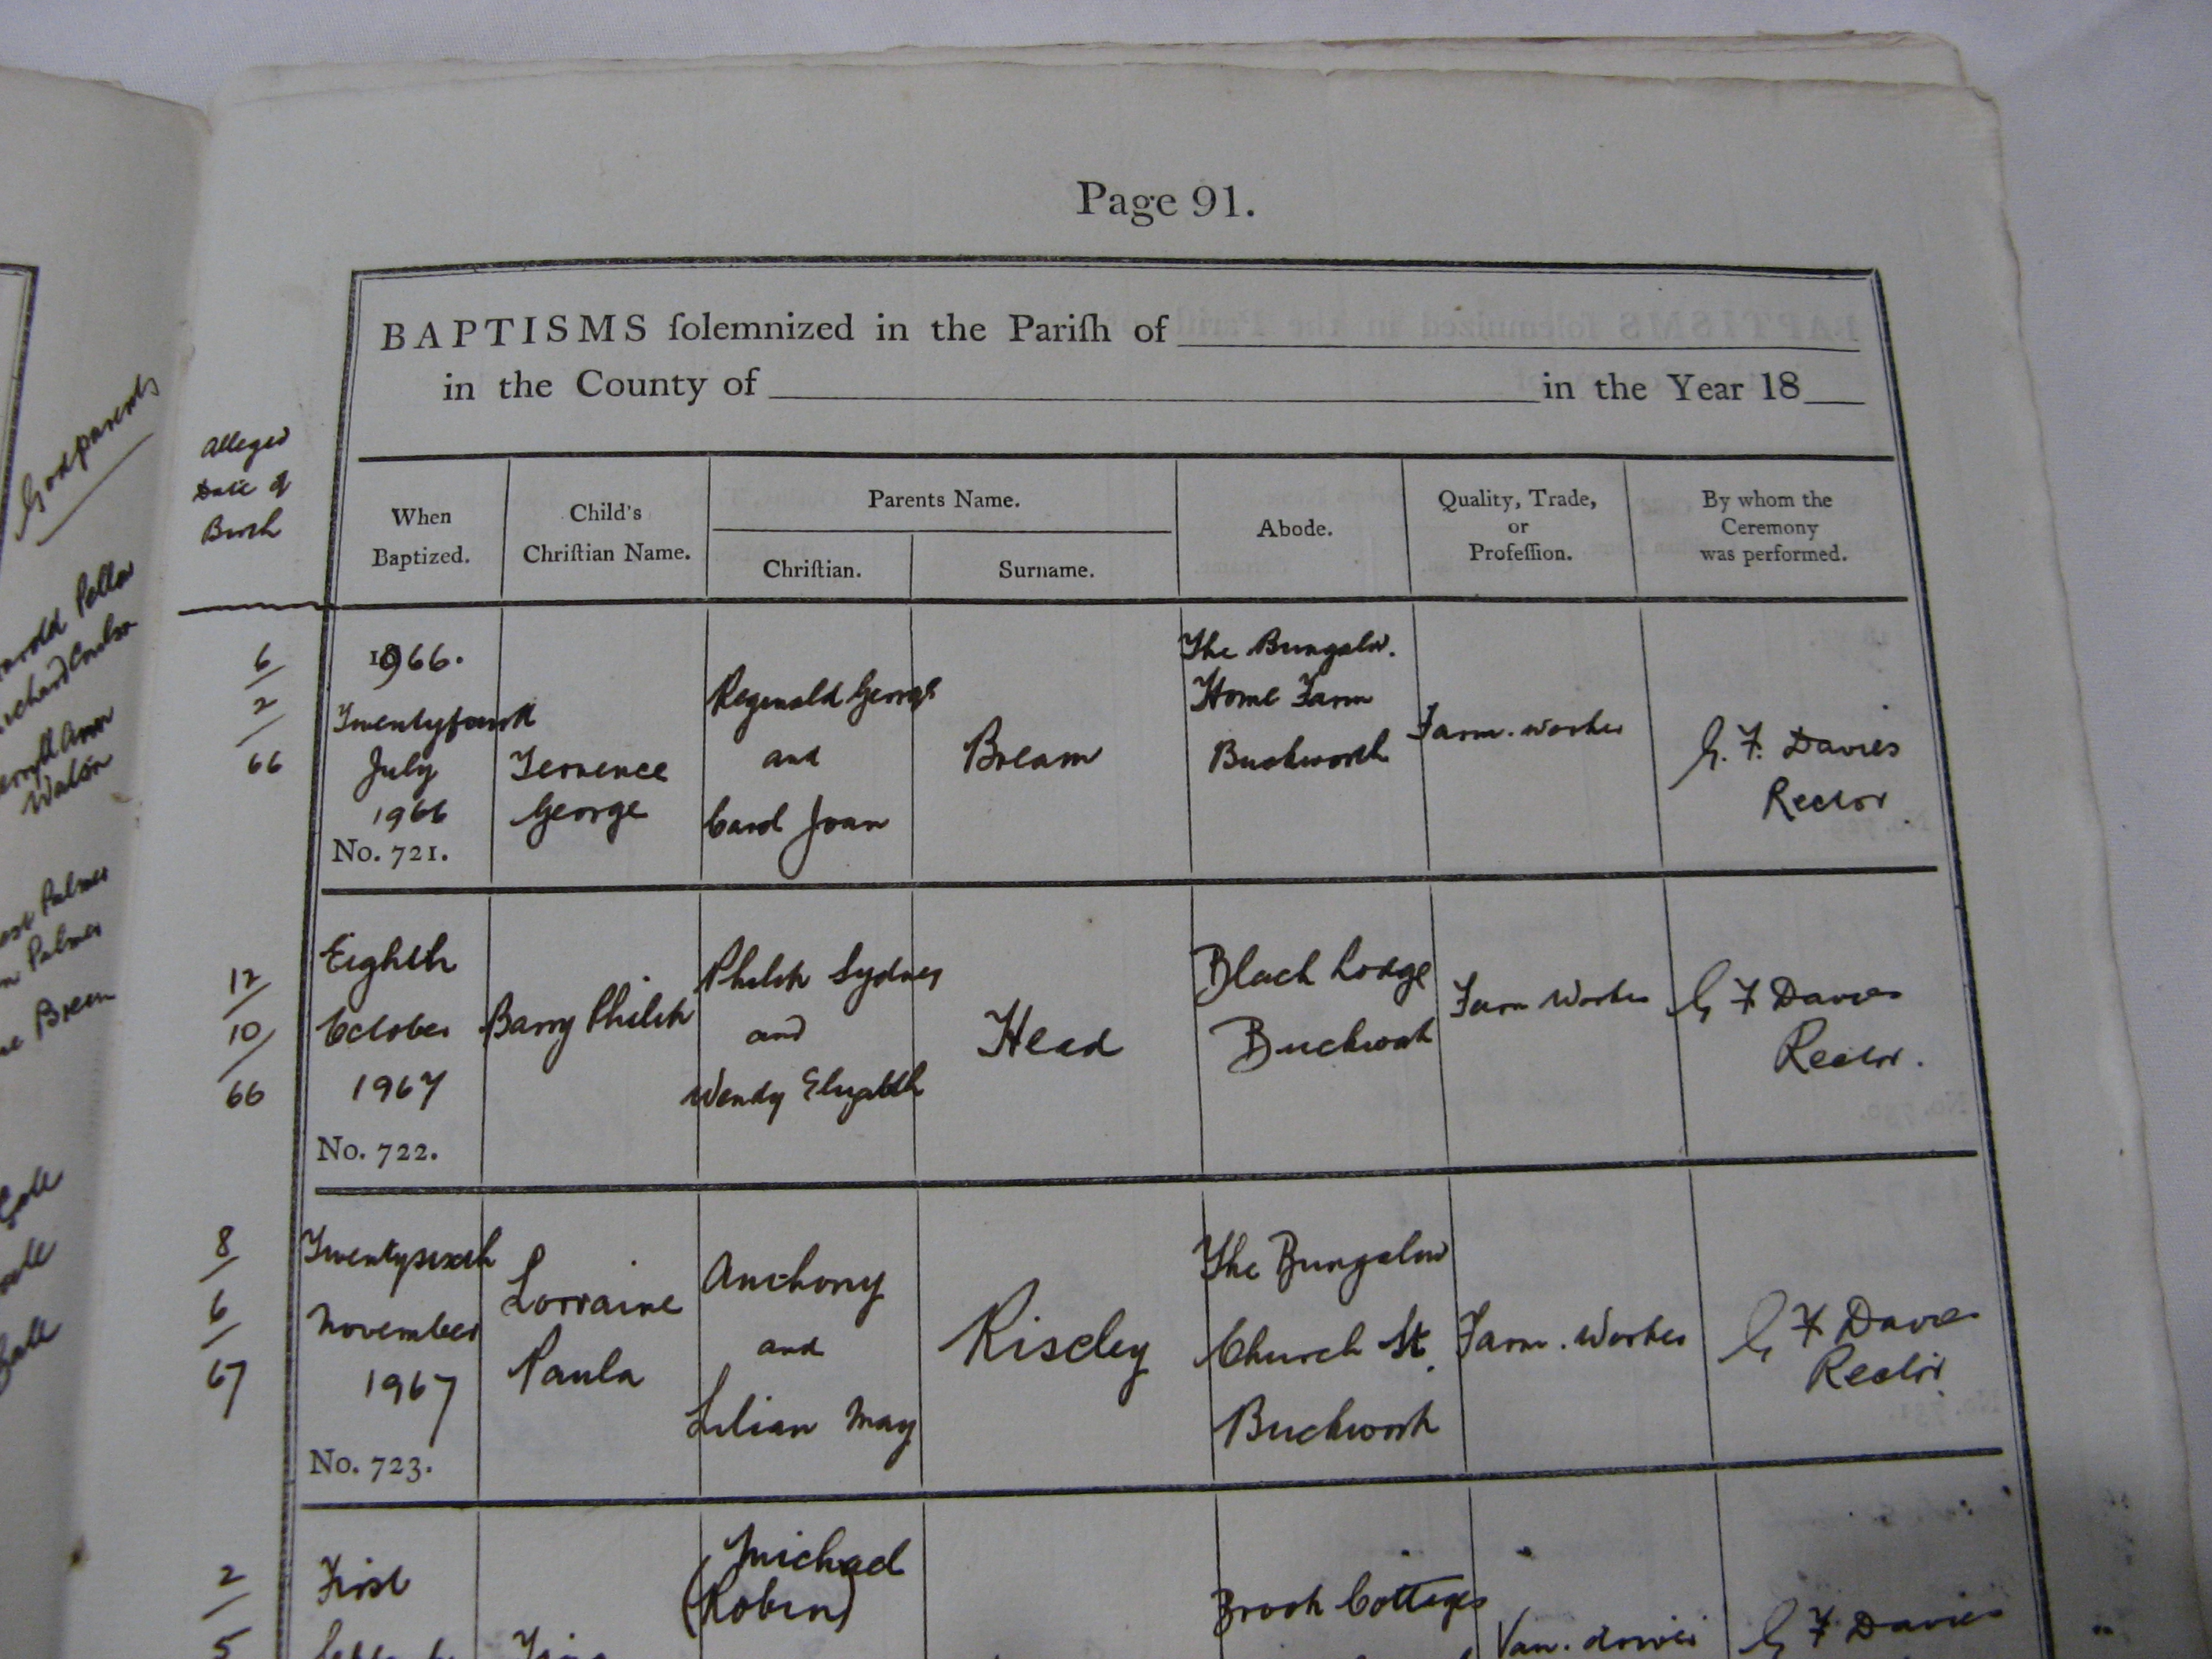 Godparents
Walson
Palmer
Palmer
Page 91.
BAPTISMS ſolemnized in the Pariſh of
in the County of in the Year 18
Alleged
Date of
Birth
When
Baptized.
Child's
Chriſtian Name.
Parents Name.
Chriſtian.
Surname.
Abode.
Quality, Trade,
or
Profeſſion.
By whom the
Ceremony
was performed.
6/
2/
66
1966.
Twentyfourth
July
1966
No. 721.
Terrence
George
Reginald George
and
Carol Joan
Bream
The Bungalow.
Home Farm
Buckworth
Farm. worker
G. F. Davies
Rector
12/
10/
66
Eighth
October
1967
No. 722.
Barry Philip
Philip Sydney
and
Wendy Elizabeth
Head
Black Lodge
Buckworth
Farm Worker
G F Davies
Rector.
8/
6/
67
Twentysixth
November
1967
No. 723.
Lorraine
Paula
Anthony
and
Lilian May
Riseley
The Bungalow
Church St.
Buckworth
Farm. Worker
G F Davies
Rector
2/
5
First
Michael
(Robin)
Brook Cottages
Van. driver
G F Davies